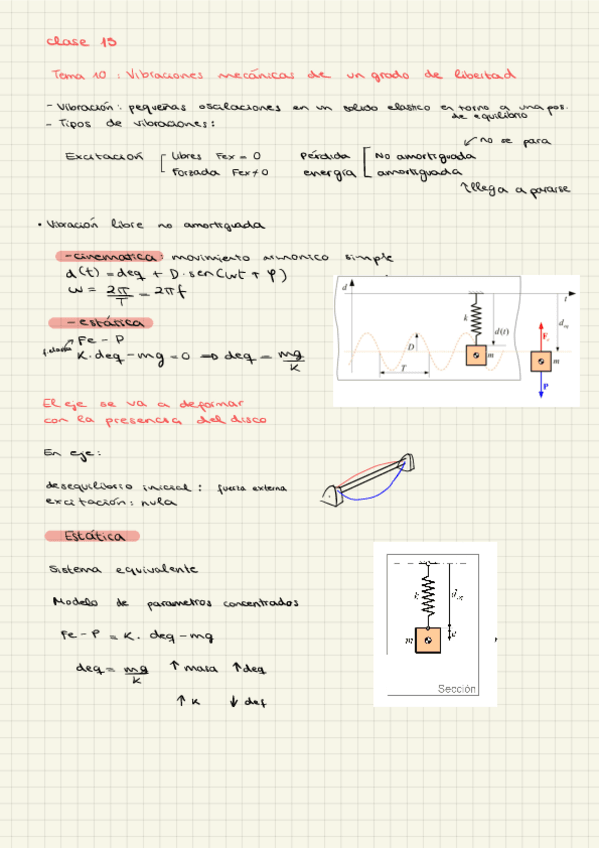 clase 15
Tema 10 : Vibraciones mecánicas de un grado de libertad
- Vibración : pequeñas oscilaciones en un solido elastico en torno a una pos. de equilibrio
- Tipos de vibraciones :
no se para
Excitación Libres Fex = 0 Pérdida No amortiguada
Forzada Fex ≠ 0 energía amortiguada
llega a pararse
• Vibración libre no amortiguada
- cinematica : movimiento armonico simple
d(t) = deq + D · sen(wt + φ)
w = 2π/T = 2πf
- estática
Fe - P
K · deq - mg = 0 ⇒ deq = mg/k
d
t
k
d(t)
d_eq
D
m
T
F_e
m
P
El eje se va a deformar
con la presencia del disco
En eje :
desequilibrio inicial : fuerza externa
excitación : nula
Estática
Sistema equivalente
Modelo de parametros concentrados
Fe - P = K · deq - mg
deq = mg/k ↑ masa ↑ deq
↑ K ↓ def
k
m
e
Sección